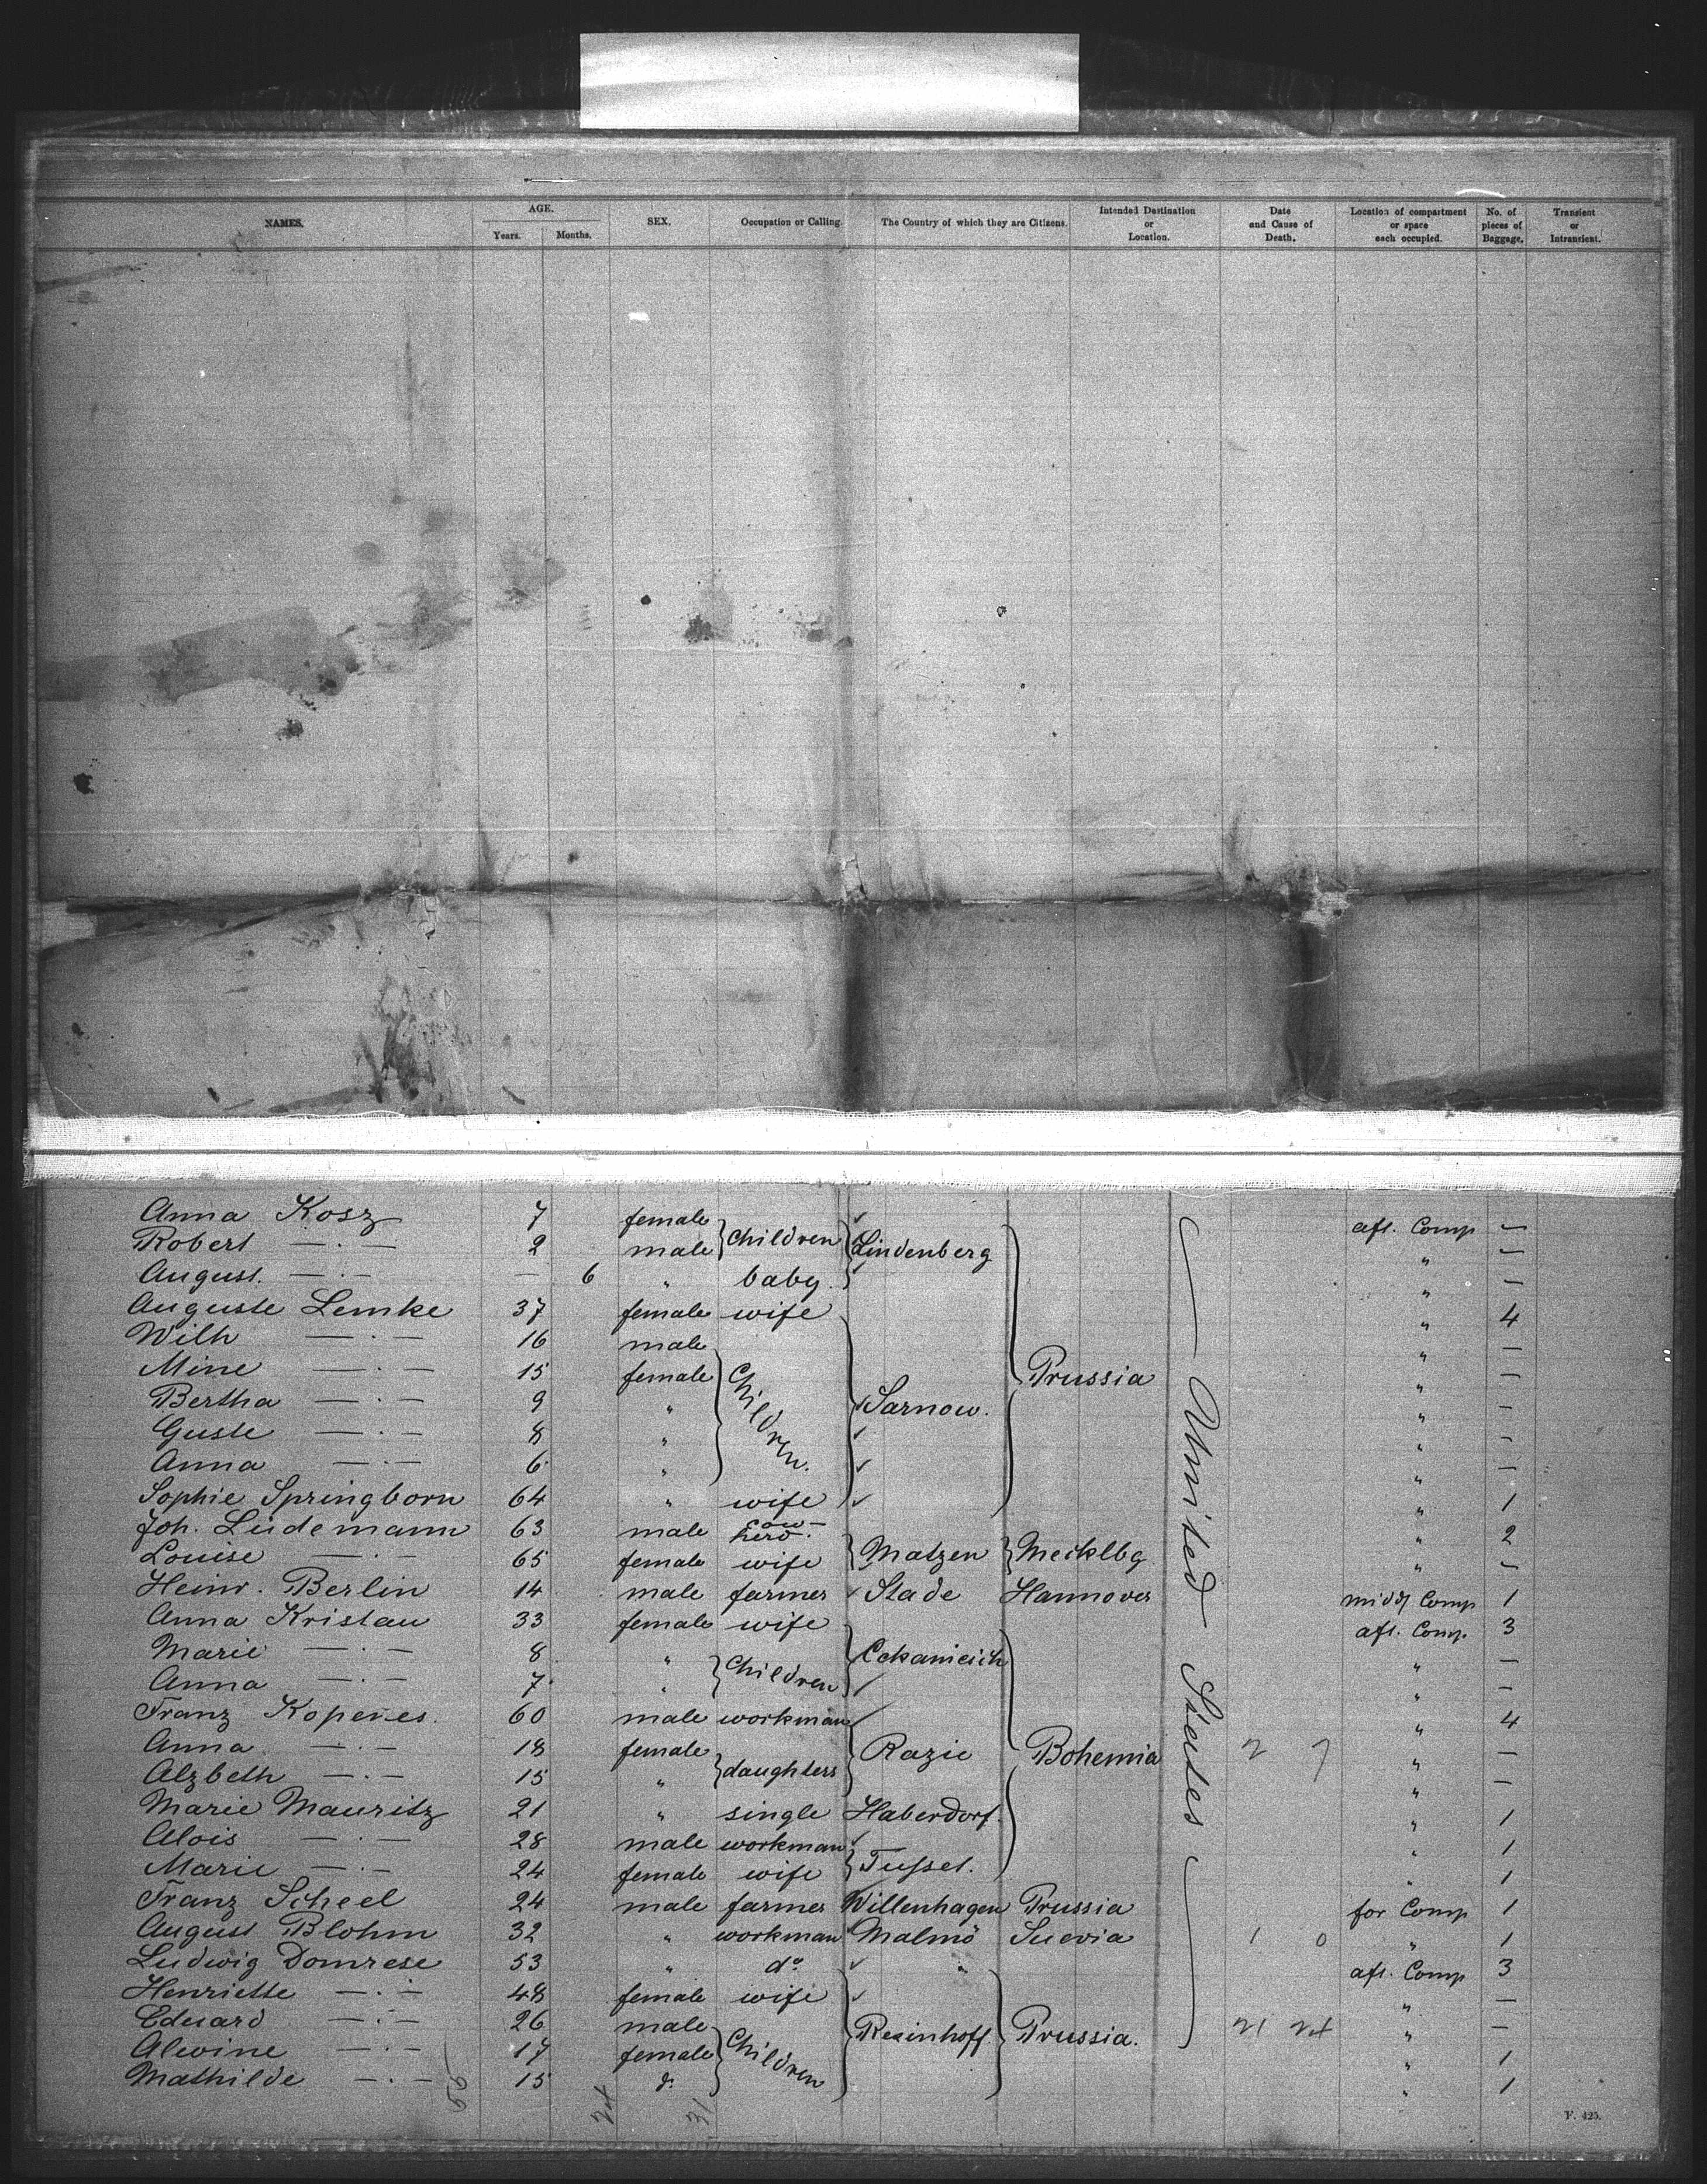 NAMES. AGE. Years. Months. SEX. Occupation or Calling. The Country of which they are Citizens. Intended Destination or Location. Date and Cause of Death. Location of compartment or space each occupied. No. of pieces of Baggage. Transient or Intransient.
Anna Kosz 7 female Children Lindenberg aft. Comp —
Robert — · — 2 male " —
August. — · — — 6 " baby. " —
Auguste Lemke 37 female wife " 4
Wilh — · — 16 male " —
Mine — · — 15 female Children Sarnow. Prussia " —
Bertha — · — 9 " " —
Guste — · — 8 " " —
Anna — · — 6 " " —
Sophie Springborn 64 " wife " 1
Joh. Lüdemann 63 male cow-herd. Matzen Mecklbg " 2
Louise — · — 65 female wife " —
Heinr. Berlin 14 male farmer Stade Hannover midd Comp 1
Anna Kristau 33 female wife aft. Comp. 3
Marie — · — 8 " Children " —
Anna — · — 7 " " —
Franz 60 male workman " 4
Anna — · — 18 female daughters Razie Bohemia 2 7 " —
Alzbeth — · — 15 " " —
Marie Mauritz 21 " single Haberdorf. " 1
Alois — · — 28 male workman " 1
Marie — · — 24 female wife " 1
Franz Scheel 24 male farmer Willenhagen Prussia for Comp 1
August Blohm 32 " workman Malmö Suevia 1 0 " 1
Ludwig Domrese 53 " do " aft. Comp 3
Henriette — · — 48 female wife " —
Eduard — · — 26 male Children Resinhoff Prussia. 21 24 " —
Alwine — · — 17 female " 1
Mathilde — · — 15 do " 1
United States
55 24 31
F. 425.